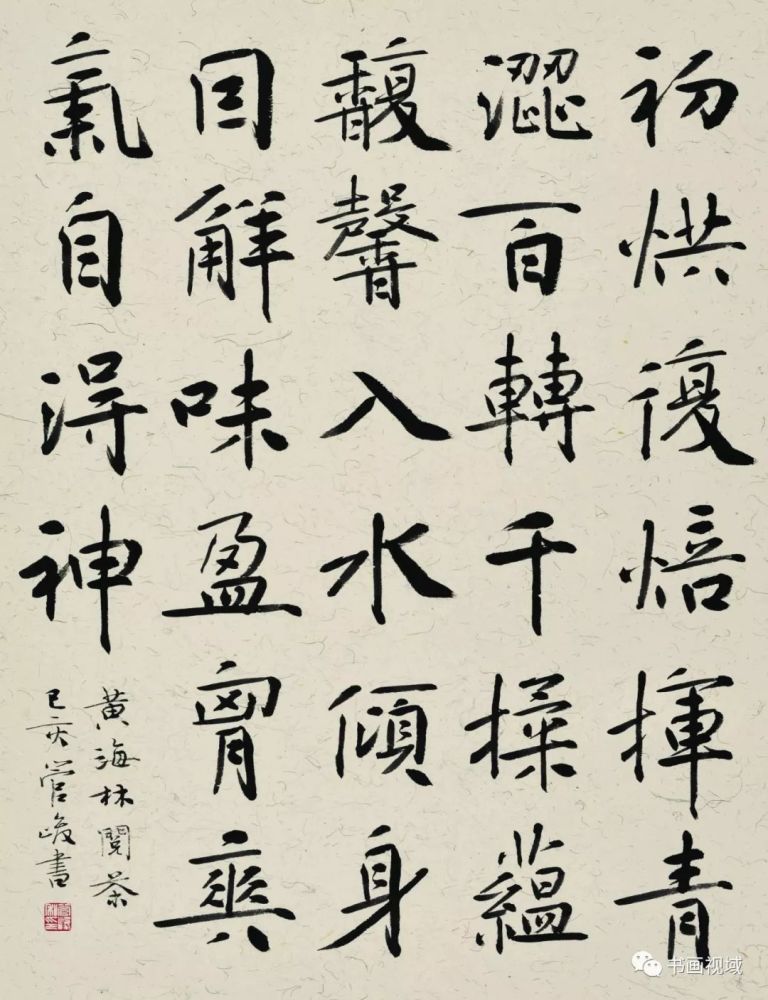 初烘復焙揮青
澀百轉千揉蘊
馥馨入水傾身
囙解味盈胷爽
氣自得神
黄海林閱茶
己亥管峻書
书画视域